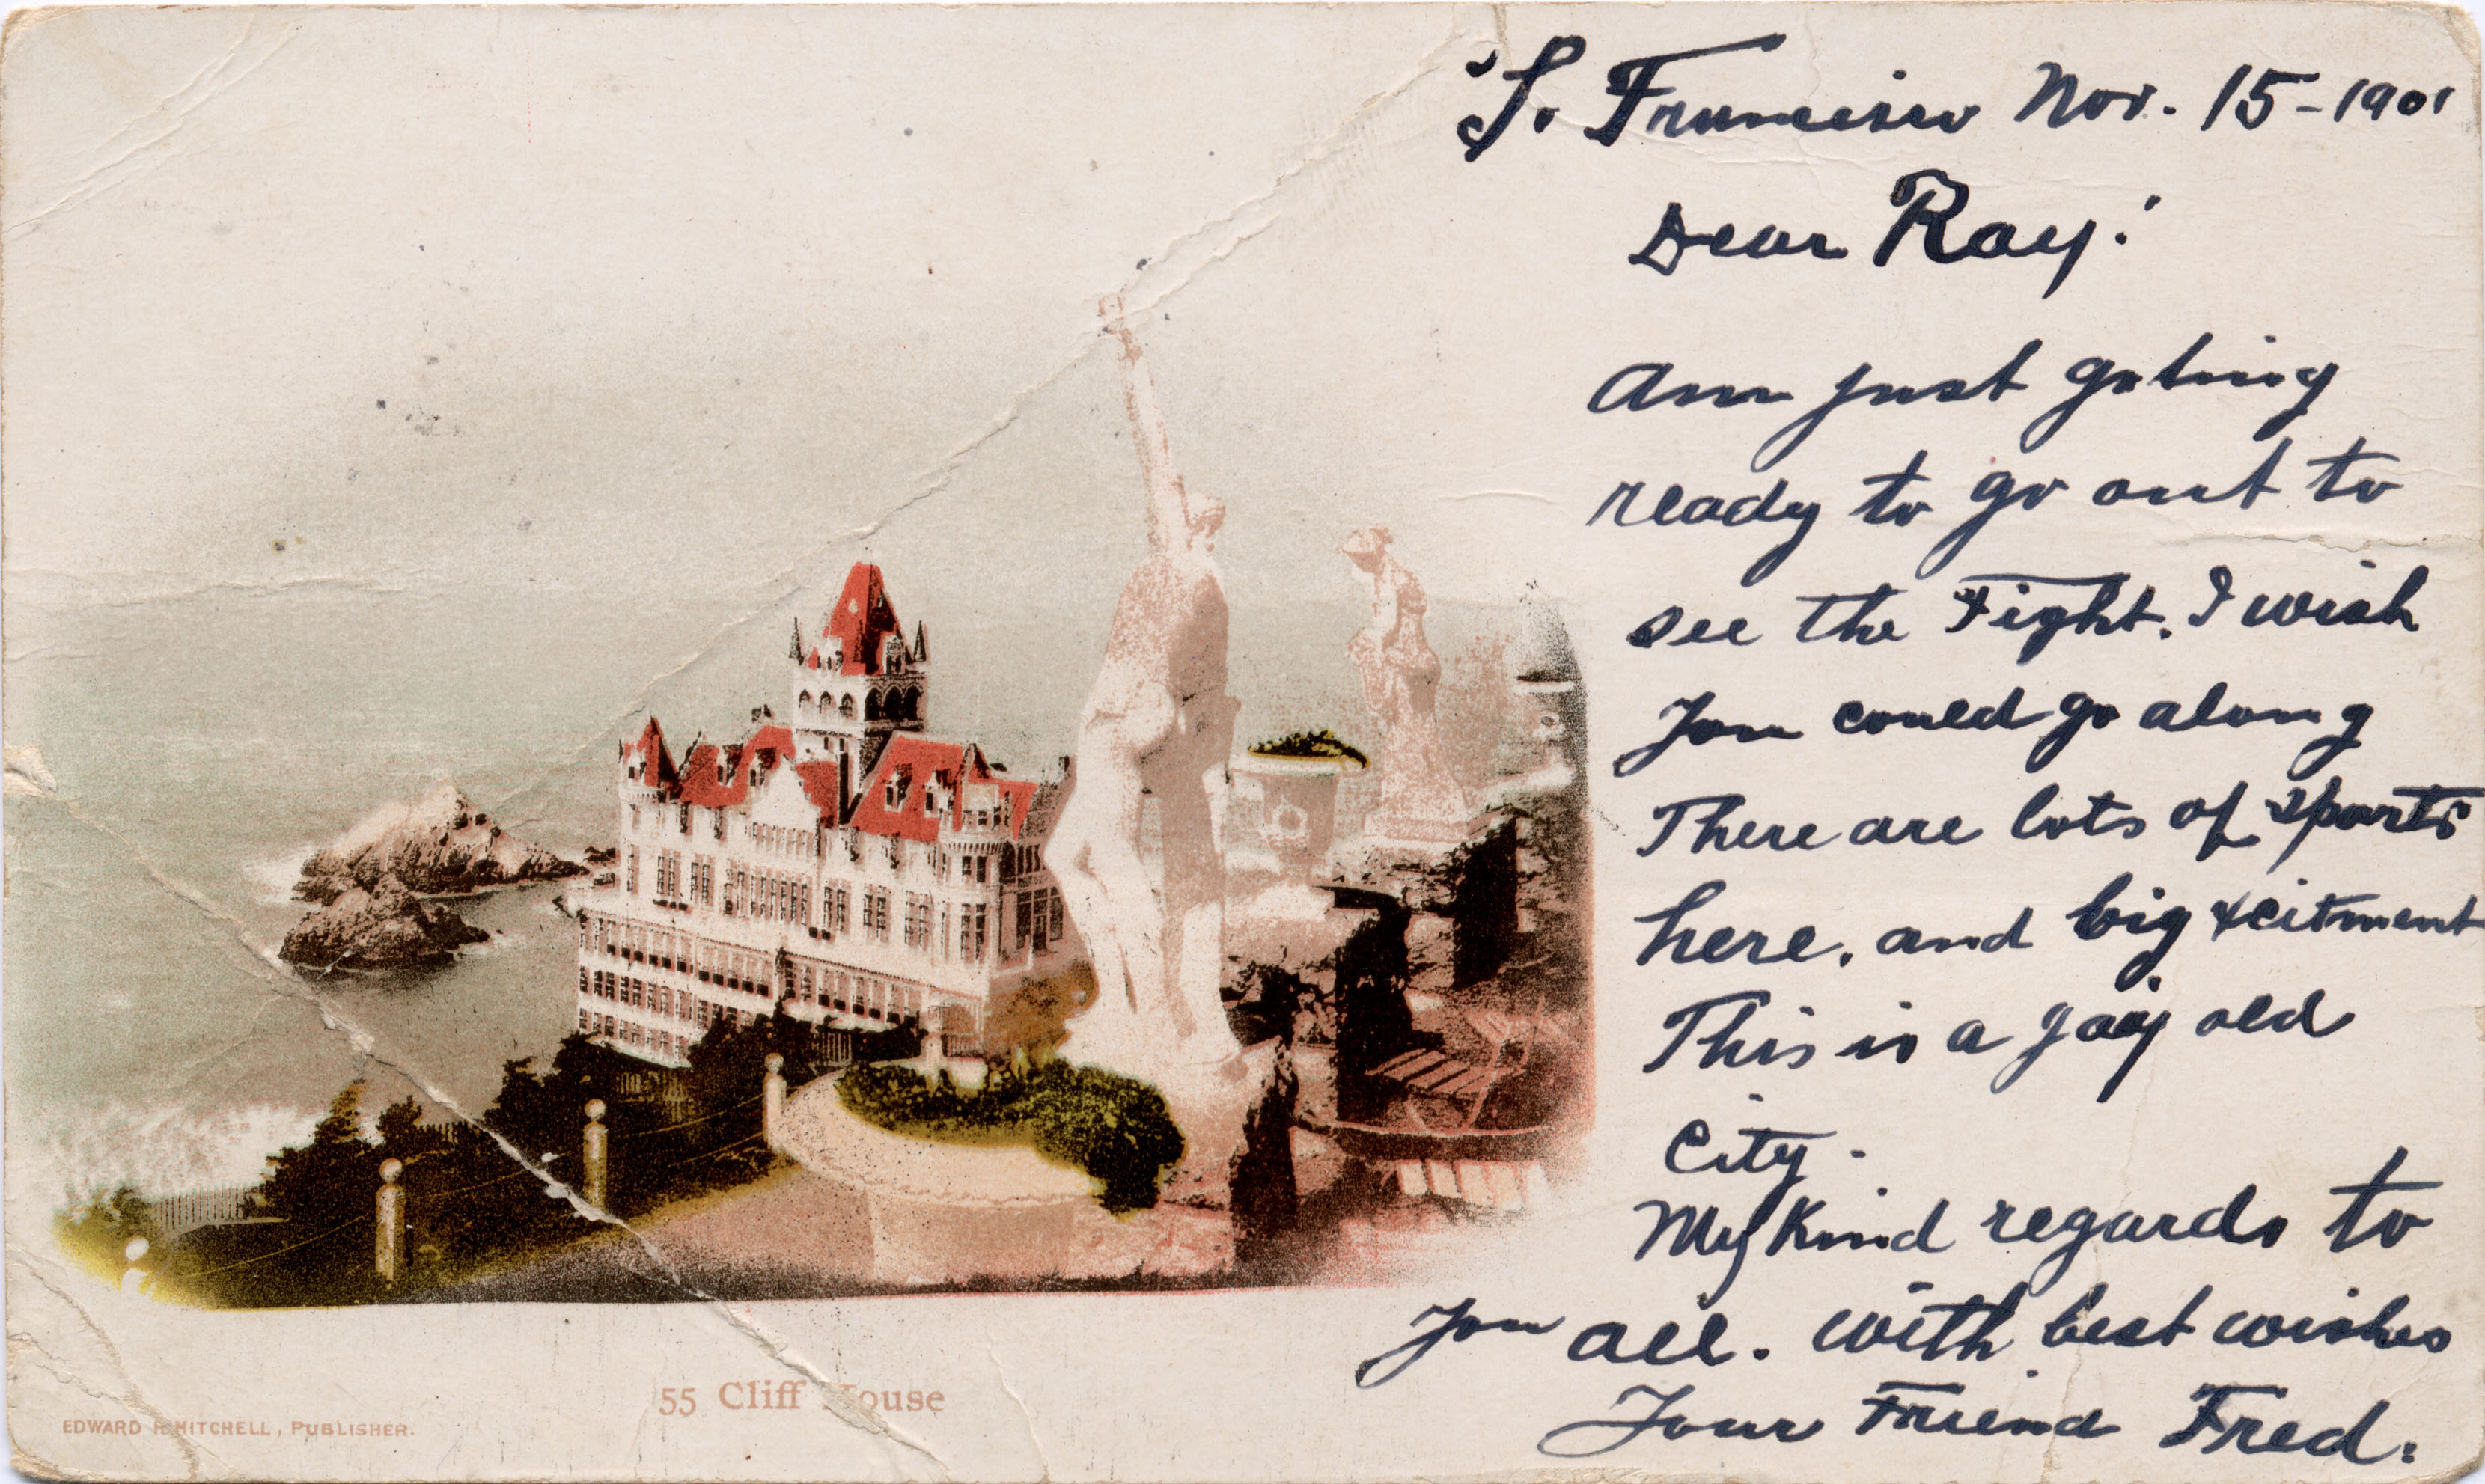 S. Francisco Nov. 15-1901
Dear Ray:
Am just goting
ready to go out to
see the Fight. I wish
You could go along
There are lots of sports
here. and big xcitment
This is a gay old
City.
My Kind regards to
You all. with best wishes
Your Friend Fred.
55 Cliff House
EDWARD H. MITCHELL, PUBLISHER.